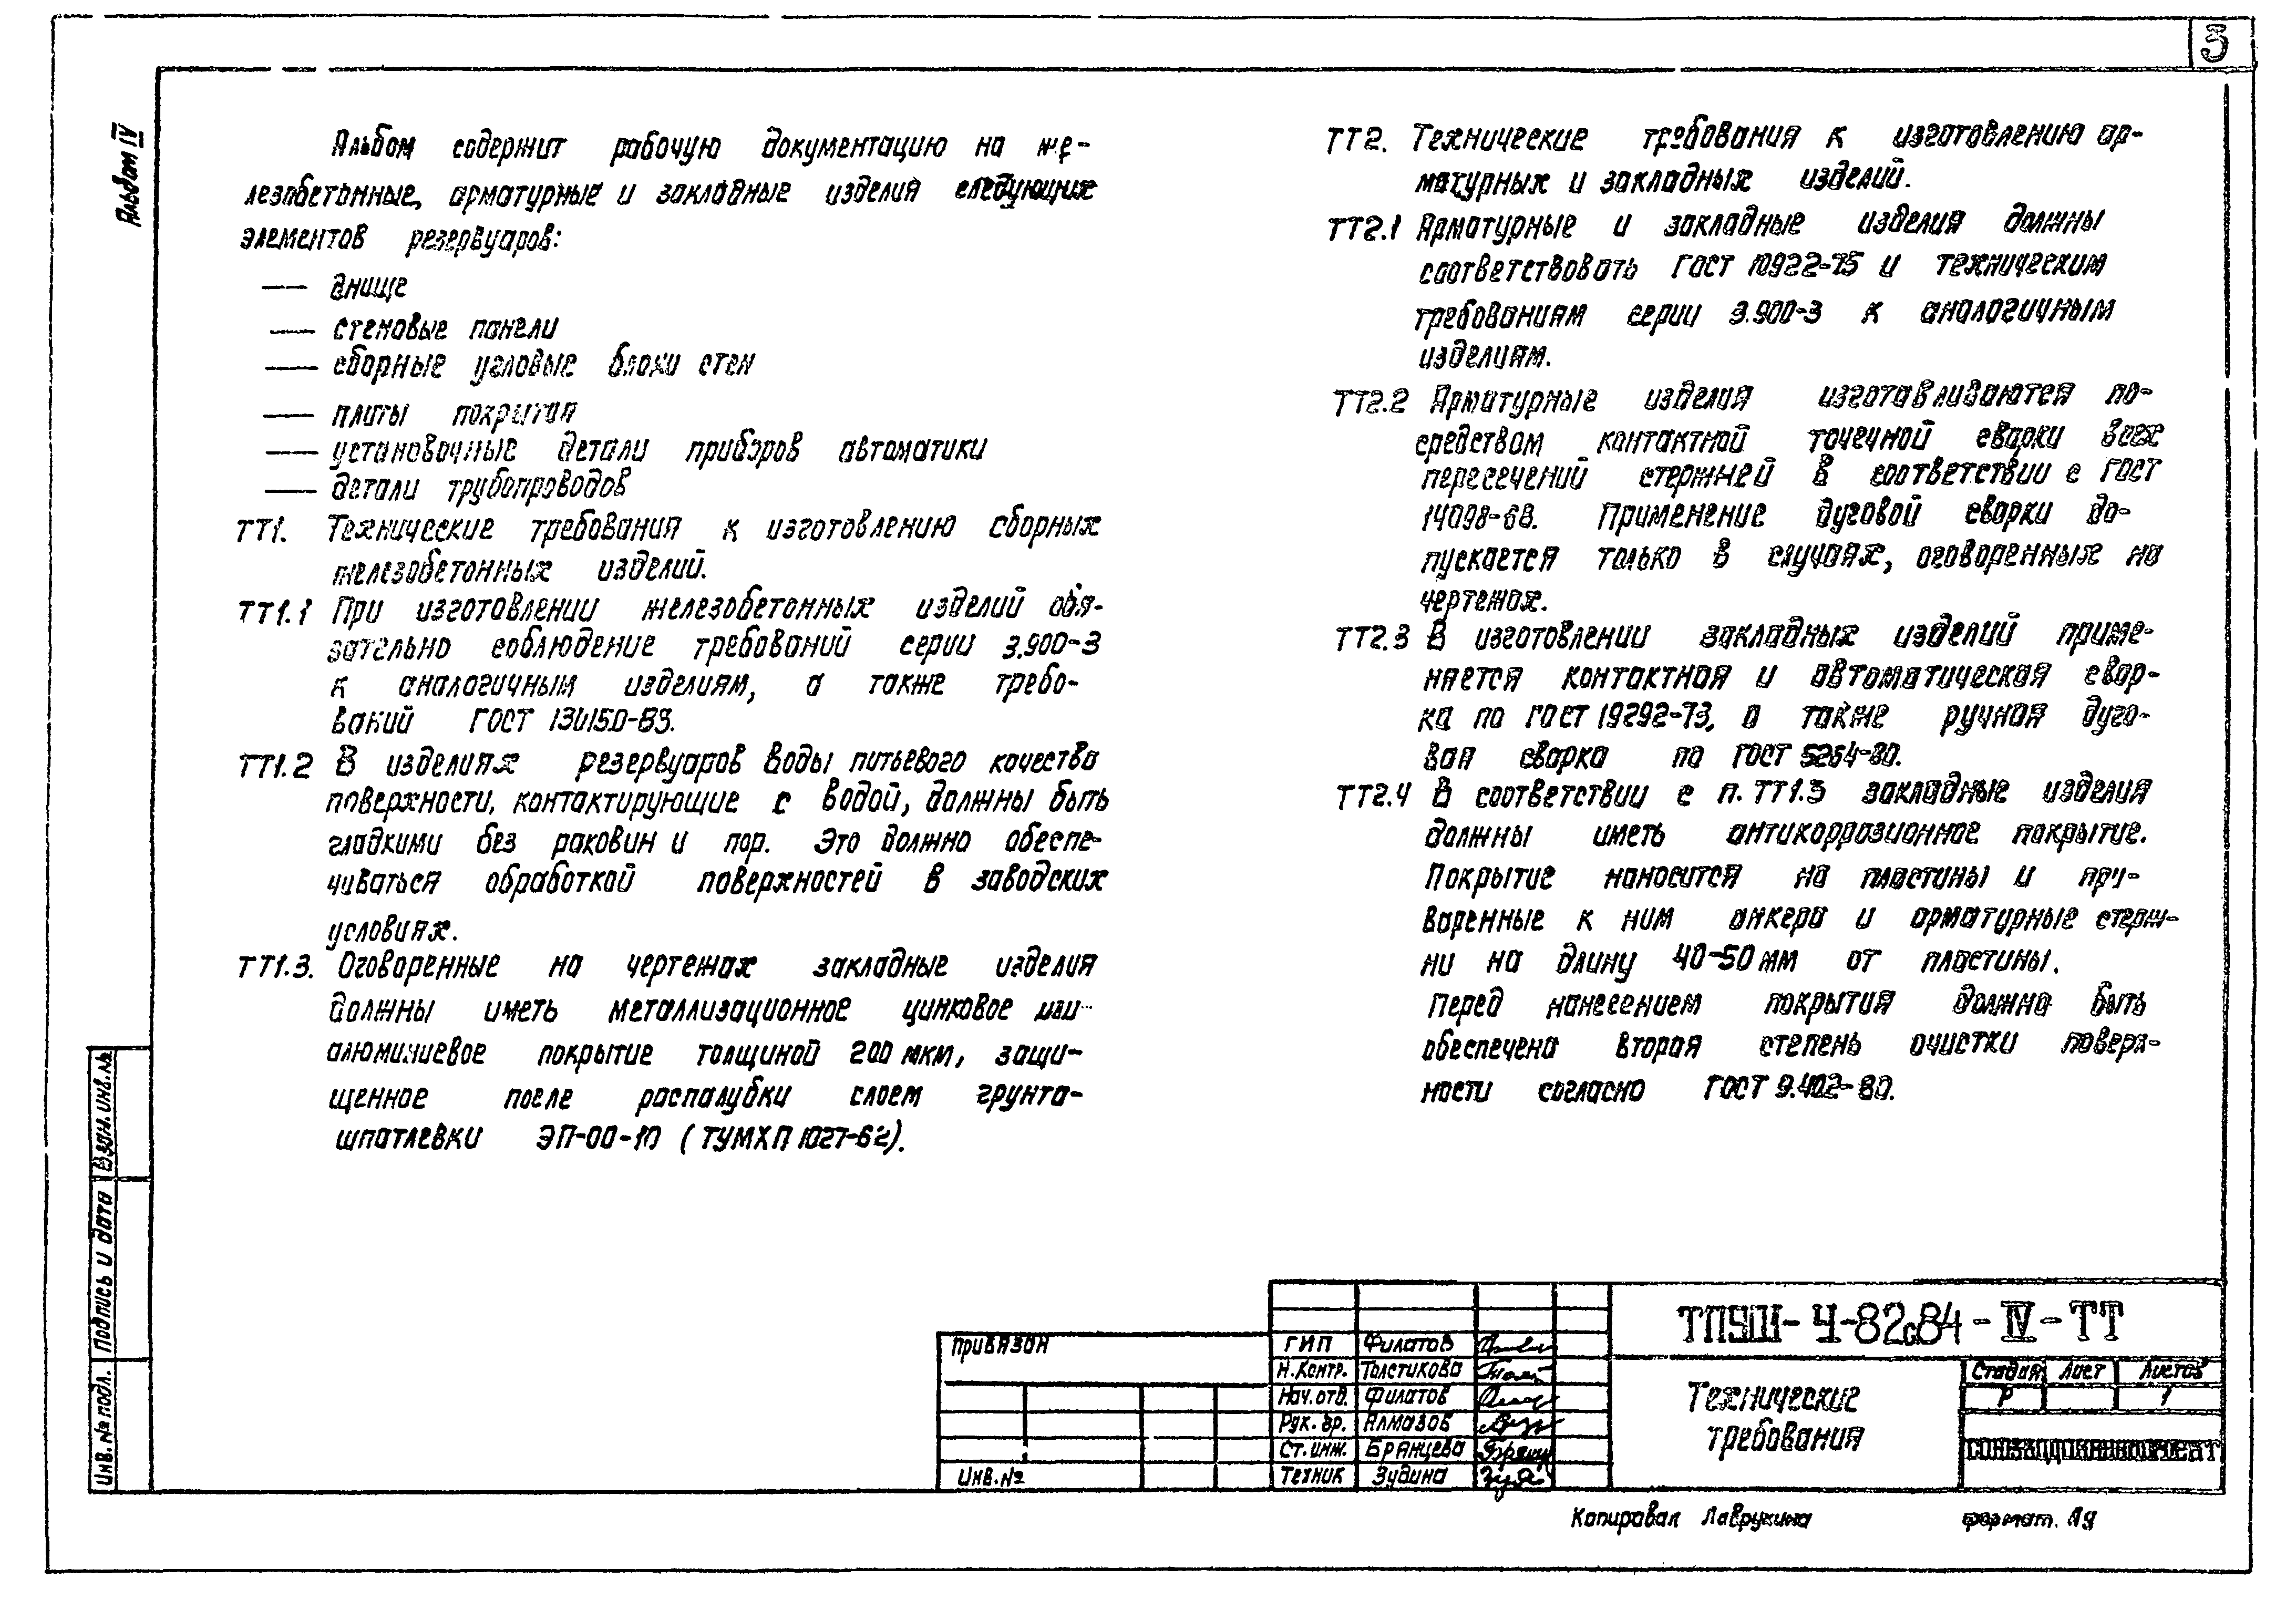 3
Альбом IV
Альбом содержит рабочую документацию на же-
лезобетонные, арматурные и закладные изделия следующих
элементов резервуаров:
— днище
— стеновые панели
— сборные угловые блоки стен
— плиты покрытия
— установочные детали приборов автоматики
— детали трубопроводов
ТТ1. Технические требования к изготовлению сборных
железобетонных изделий.
ТТ1.1 При изготовлении железобетонных изделий обя-
зательно соблюдение требований серии 3.900-3
к аналогичным изделиям, а также требо-
ваний ГОСТ
ТТ1.2 В изделиях резервуаров воды питьевого качества
поверхности, контактирующие с водой, должны быть
гладкими без раковин и пор. Это должно обеспе-
чиваться обработкой поверхностей в заводских
условиях.
ТТ1.3. Оговоренные на чертежах закладные изделия
должны иметь металлизационное цинковое или
алюминиевое покрытие толщиной 200 мкм, защи-
щенное после распалубки слоем грунта-
шпатлевки ЭП-00-10 (ТУМХП 1027-62).
ТТ2. Технические требования к изготовлению ар-
матурных и закладных изделий.
ТТ2.1 Арматурные и закладные изделия должны
соответствовать ГОСТ 10922-75 и техническим
требованиям серии 3.900-3 к аналогичным
изделиям.
ТТ2.2 Арматурные изделия изготавливаются по-
средством контактной точечной сварки всех
пересечений стержней в соответствии с ГОСТ
14098-68. Применение дуговой сварки до-
пускается только в случаях, оговоренных на
чертежах.
ТТ2.3 В изготовлении закладных изделий приме-
няется контактная и автоматическая свар-
ка по ГОСТ 19292-73, а также ручная дуго-
вая сварка по ГОСТ 5264-80.
ТТ2.4 В соответствии с п. ТТ1.3 закладные изделия
должны иметь антикоррозионное покрытие.
Покрытие наносится на пластины и при-
варенные к ним анкера и арматурные стерж-
ни на длину 40-50 мм от пластины.
Перед нанесением покрытия должна быть
обеспечена вторая степень очистки поверх-
ности согласно ГОСТ 9.402-80.
Взам. инв. №
Подпись и дата
Инв. № подл.
Привязан
Инв. №
ГИП Филатов
Н.Контр. Толстикова
Нач. отд. Филатов
Рук. бр. Алмазов
Ст. инж. Брянцева
Техник Зудина
ТПУШ-У-82с84-IV-ТТ
Технические
требования
Стадия Лист Листов
Р 1
Копировал Лаврухина формат.